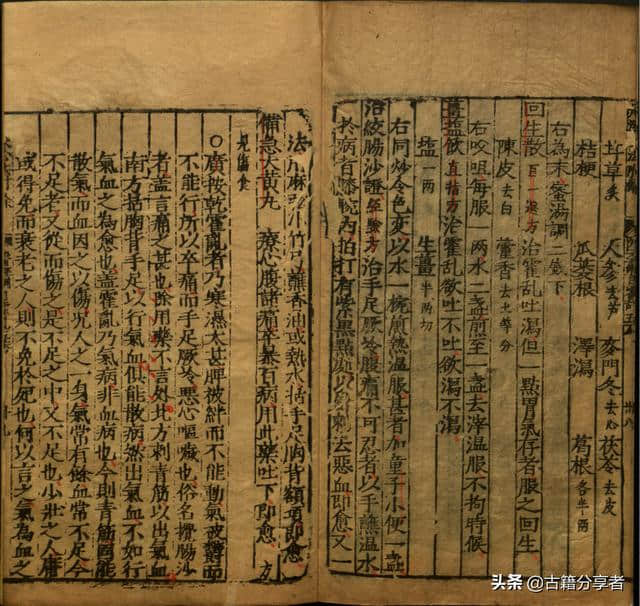 甘草炙 人參去芦 麥門冬去心 茯苓去皮
桔梗 瓜蔞根 澤瀉 葛根各半兩
右為末蜜湯調二錢下
回生散 百一選方 治霍乱吐瀉但一點胃氣存者服之回生
陳皮去白 藿香去土等分
右㕮咀每服一兩水二盞煎至一盞去滓溫服不拘時候
薑塩飲 直指方 治霍亂欲吐不吐欲瀉不瀉
塩一兩 生薑半兩切
右同炒令色变以水一椀煎熱溫服甚者加童子小便一盞
治絞腸沙證 方 治手足厥冷腹痛不可忍者以手蘸温水
於病者膝腕內拍打有紫黑點處以 刺去惡血即愈又一
法用麻 小竹弓蘸香油或熱水 手足胸背額項即愈
備急大黃丸 療心腹諸痛卒暴百病用此藥吐下即愈 方
見傷食
○廣按乾霍亂者乃寒濕太甚脾被絆而不能動氣被 而
不能行所以卒痛而手足厥冷惡心嘔噦也俗名攪腸沙
者蓋言痛之甚也除用藥不言外北方刺青筋以出氣血
南方括胸背手足以行氣血俱能散病然出氣血不如行
氣血之為愈也蓋霍亂乃氣病非血病也今刺青筋固能
散氣而血因之以傷况人之一身氣常有餘血常不足今
不足者又從而傷之是不足之中又不足也少壯之人庸
或得免而衰老之人則不免於死也何以言之氣為血之
头条 @古籍分享者